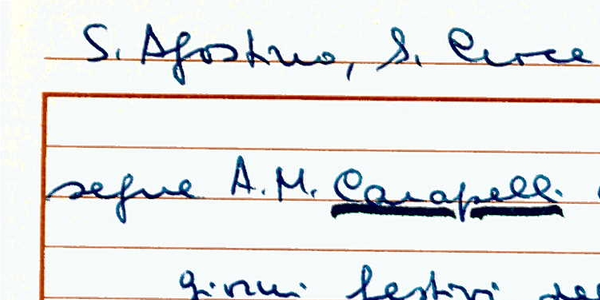 S. Agostino, S. Croce
segue A.M. Carapelli
giorni festivi